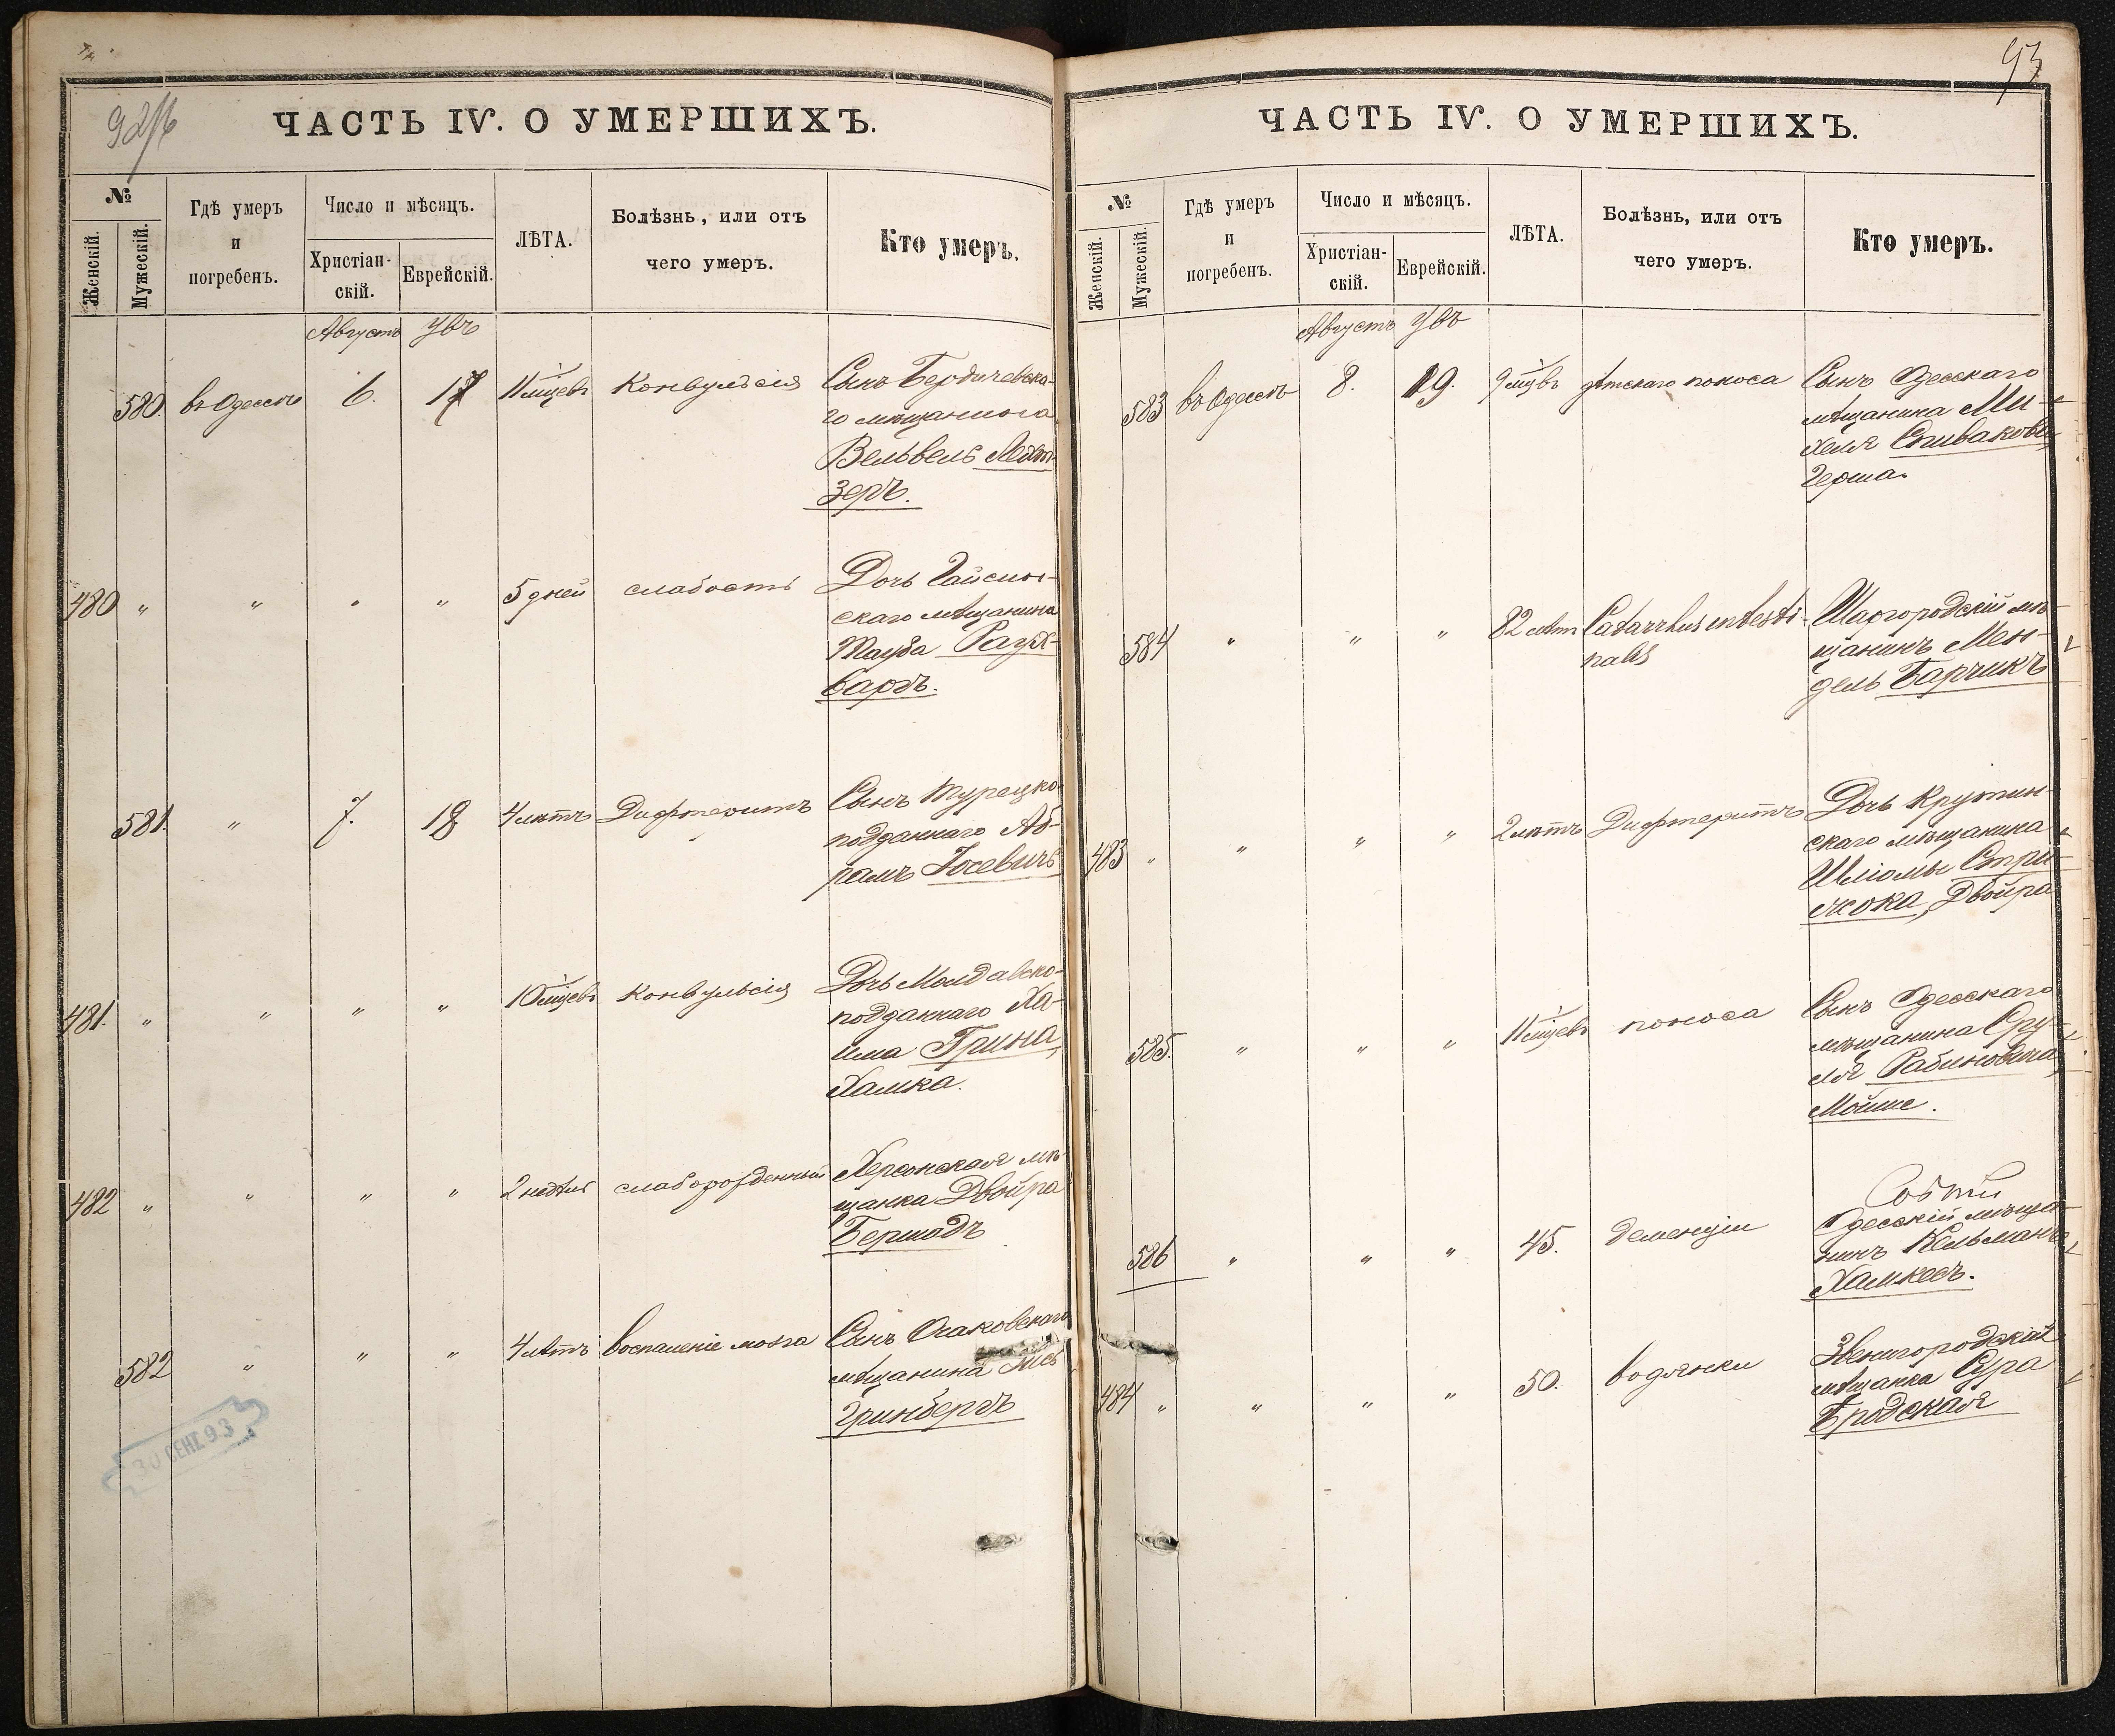 92/б
ЧАСТЬ IV. О УМЕРШИХЪ.
№
Женскій.
Мужескій.
Гдѣ умеръ
и
погребенъ.
Число и мѣсяцъ.
Христіан-
скій.
Еврейскій.
ЛѢТА.
Болѣзнь, или отъ
чего умеръ.
Кто умеръ.
Августъ
580. въ Одессѣ 6. 17 11 мцевъ Конвульсія Сынъ Бердичевска-
го мѣщанина
Вельвель
зеръ.
480 " " " " 5 дней слабость Дочь Гайсин-
скаго мѣщанина
Тауба Раух-
варгъ.
581. " 7. 18 4 лѣтъ Дифтеритъ Сынъ Турецко
подданнаго Аб-
рамъ Іосевичъ
481. " " " " 10 мцевъ Конвульсія Дочь Молдавско-
подданнаго Ха-
има Грина,
Хаика.
482 " " " " 2 недѣли слаборожденный Херсонская мѣ-
щанка Двойра
Бершадъ
582 " " " 4 лѣтъ воспаленіе мозга Сынъ Очаковскаго
мѣщанина
Гринбергъ
30 СЕНТ. 93
93
ЧАСТЬ IV. О УМЕРШИХЪ.
№
Женскій.
Мужескій.
Гдѣ умеръ
и
погребенъ.
Число и мѣсяцъ.
Христіан-
скій.
Еврейскій.
ЛѢТА.
Болѣзнь, или отъ
чего умеръ.
Кто умеръ.
Августъ
583 въ Одессѣ 8. 19. 9 мцвъ дѣтскаго поноса Сынъ Одесскаго
мѣщанина Ми-
хеля Спиваковъ,
Герша.
584 " " " 82 лѣтъ Catarrhus intesti-
nalis
Шаргородскій мѣ-
щанинъ Мен-
дель Барчикъ
483 " " " " 2 лѣтъ Дифтеритъ Дочь Крутин-
скаго мѣщанина
Шліомы Стри-
жока, Двойра
585. " " " 11 мцевъ поноса Сынъ Одесскаго
мѣщанина Сру-
ля Рабиновича,
Мойше.
586 " " " 45. деменціи
Одесскій мѣща-
нинъ Кельманъ
Хамкесъ.
484 " " " " 50. водянки Звенигородская
мѣщанка Сура
Бродская